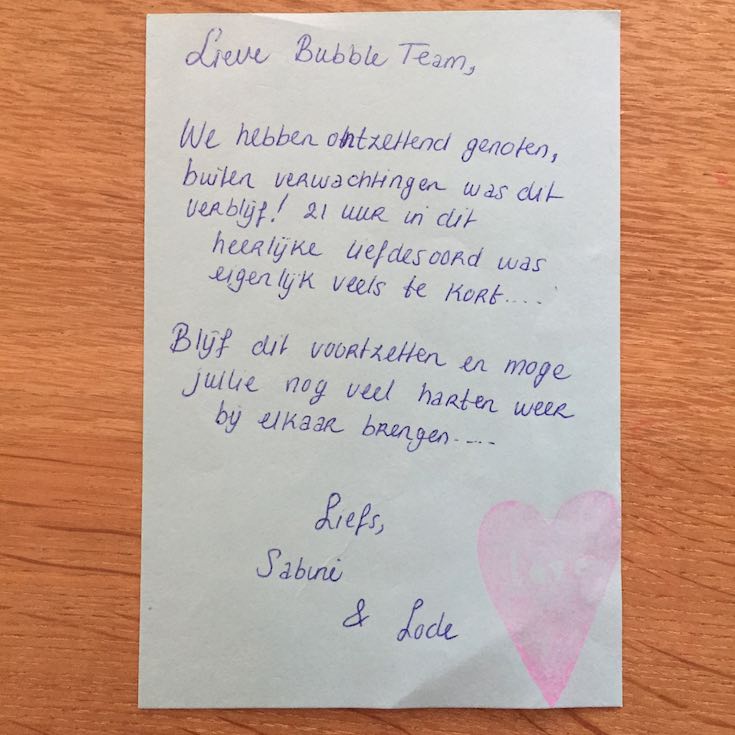 Lieve Bubble Team,
We hebben ontzettend genoten,
buiten verwachtingen was dit
verblijf! 21 uur in dit
heerlijke liefdesoord was
eigenlijk veels te kort....
Blijf dit voortzetten en moge
jullie nog veel harten weer
bij elkaar brengen....
Liefs,
Sabine
& Lode
Love